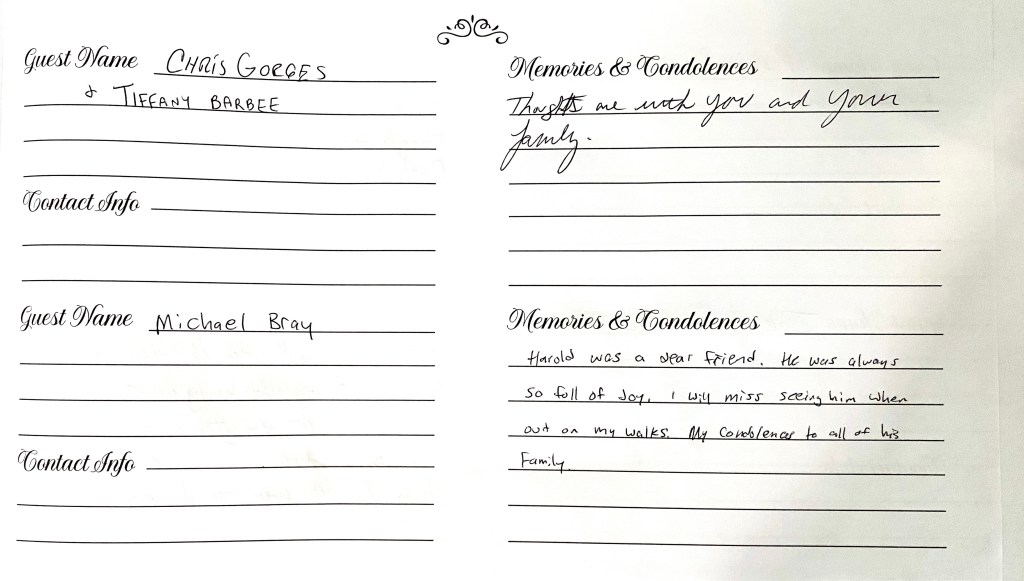 Guest Name Chris Gorges
& Tiffany Barbee
Contact Info
Memories & Condolences
Thoughts are with you and your
family.
Guest Name Michael Bray
Contact Info
Memories & Condolences
Harold was a dear friend. He was always
so full of Joy. I will miss seeing him when
out on my walks. My Condolences to all of his
Family